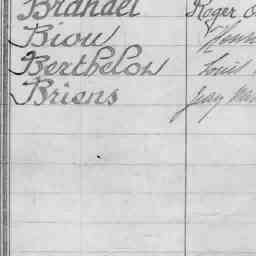 Brandel Roger
Biou Henri
Berthelow Louis
Briens Jean